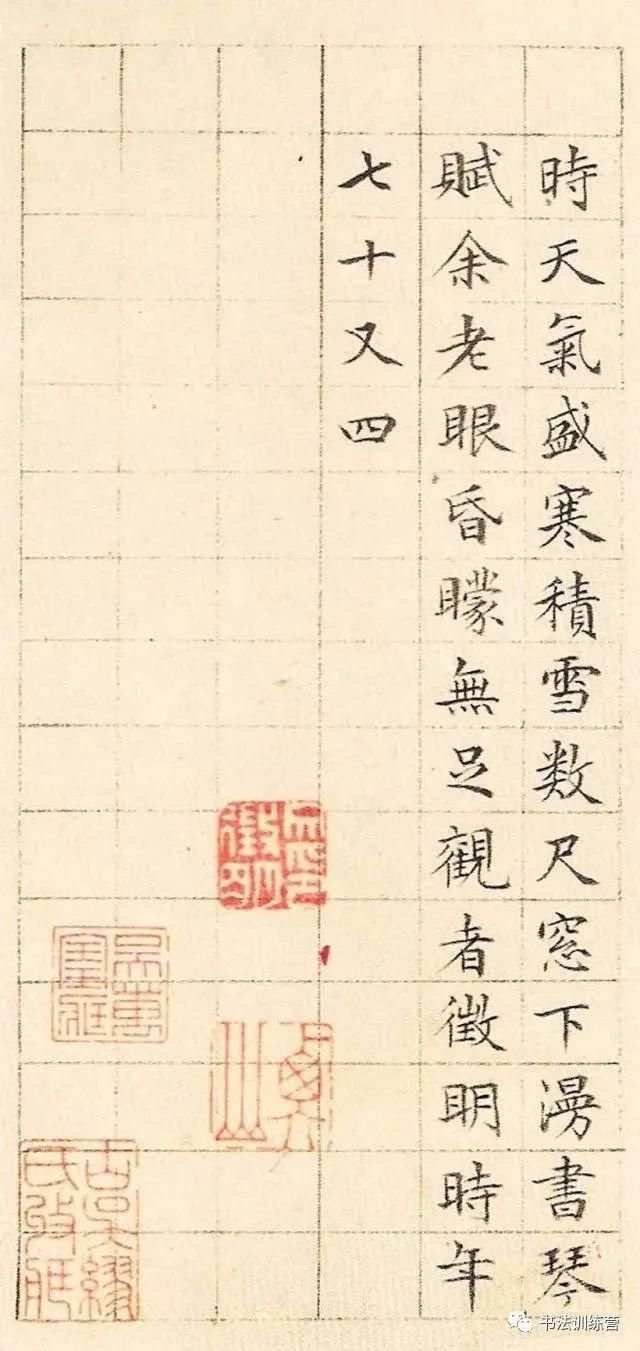 時天氣盛寒積雪数尺窓下漫書琴
賦余老眼昏矇無足觀者徵明時年
七十又四
书法训练营